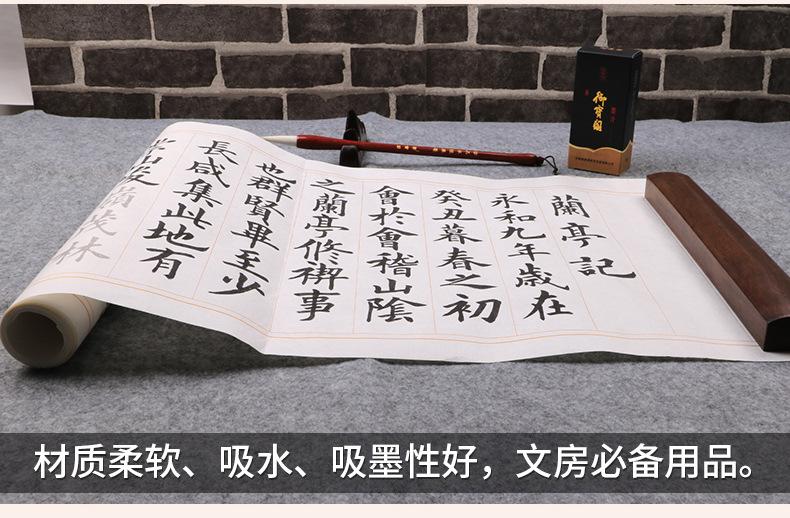 蘭亭記
永和九年歲在
癸丑暮春之初
會於會稽山陰
之蘭亭修禊事
也群賢畢至少
長咸集此地有
崇山峻嶺茂林
御寶閣
材质柔软、吸水、吸墨性好，文房必备用品。